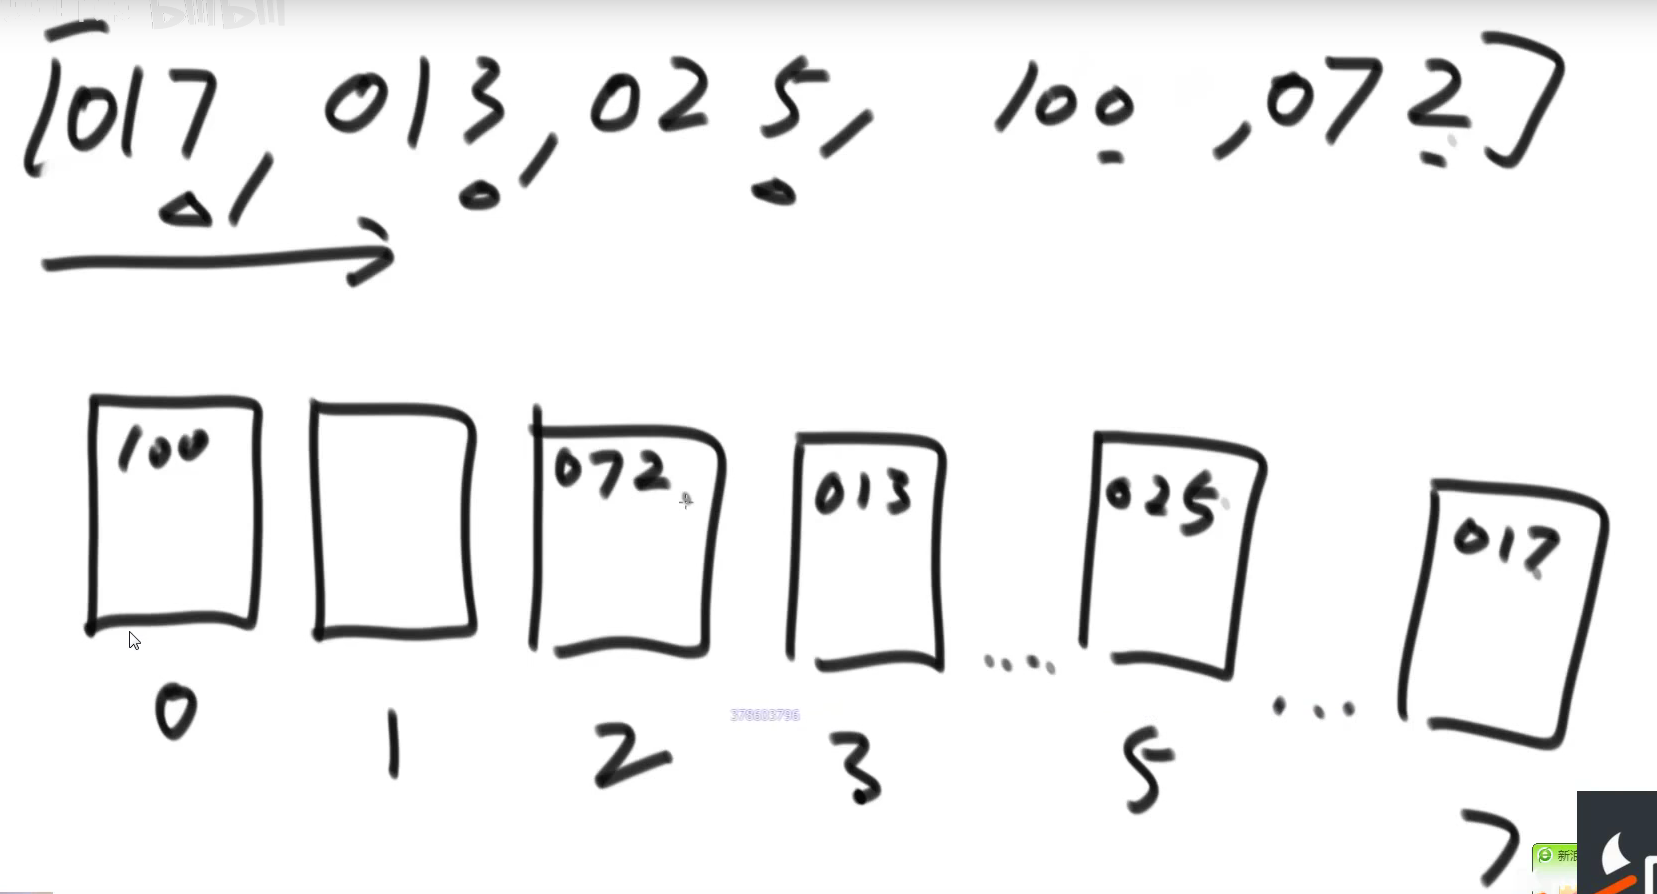 [017, 013, 025, 100, 072]
100 072 013 025 017
0 1 2 3 5 7
378683796
新浪